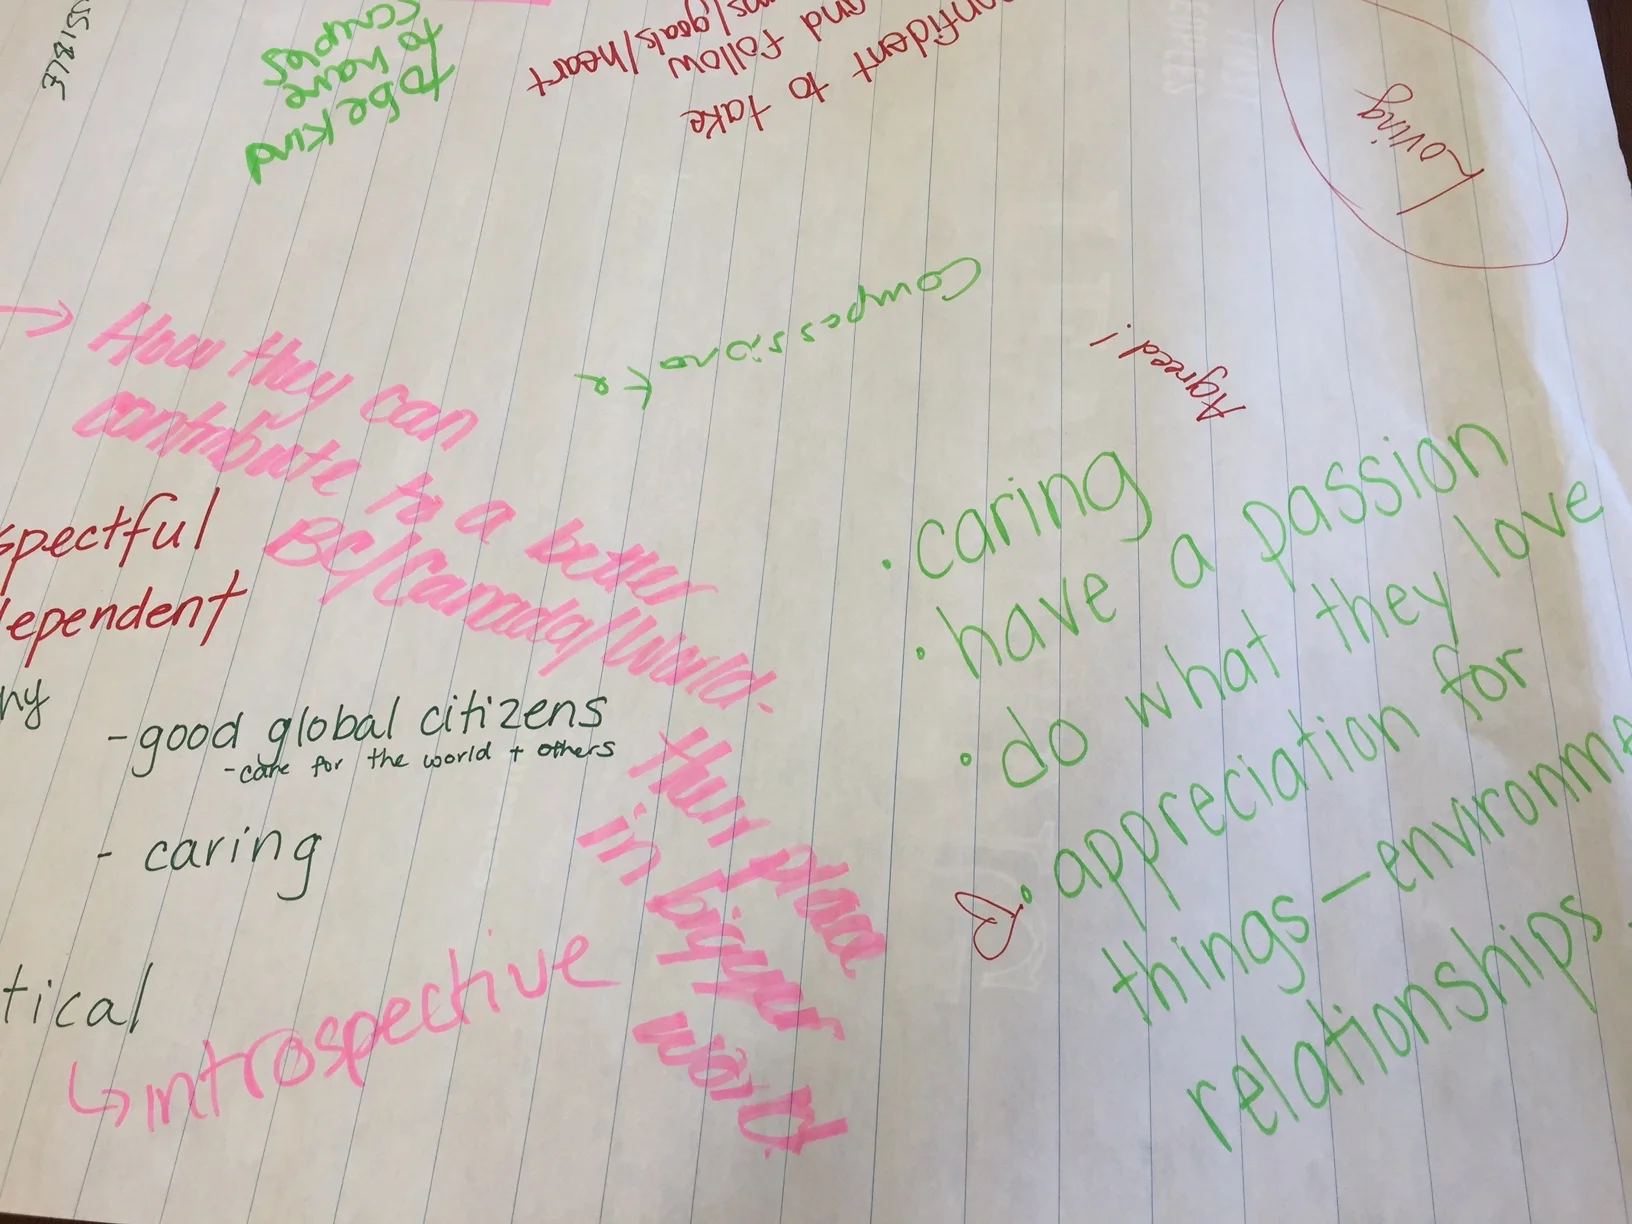 to be kind
to have
confident to take
and follow
/goals/heart
Loving
Compassionate
Agreed!
→ How they can
contribute to a better
BC/Canada/World.
Their place
in bigger
world
spectful
dependent
- good global citizens
- care for the world + others
- caring
tical
↳ introspective
· caring
· have a passion
· do what they love
· appreciation for
things - environme
relationships.